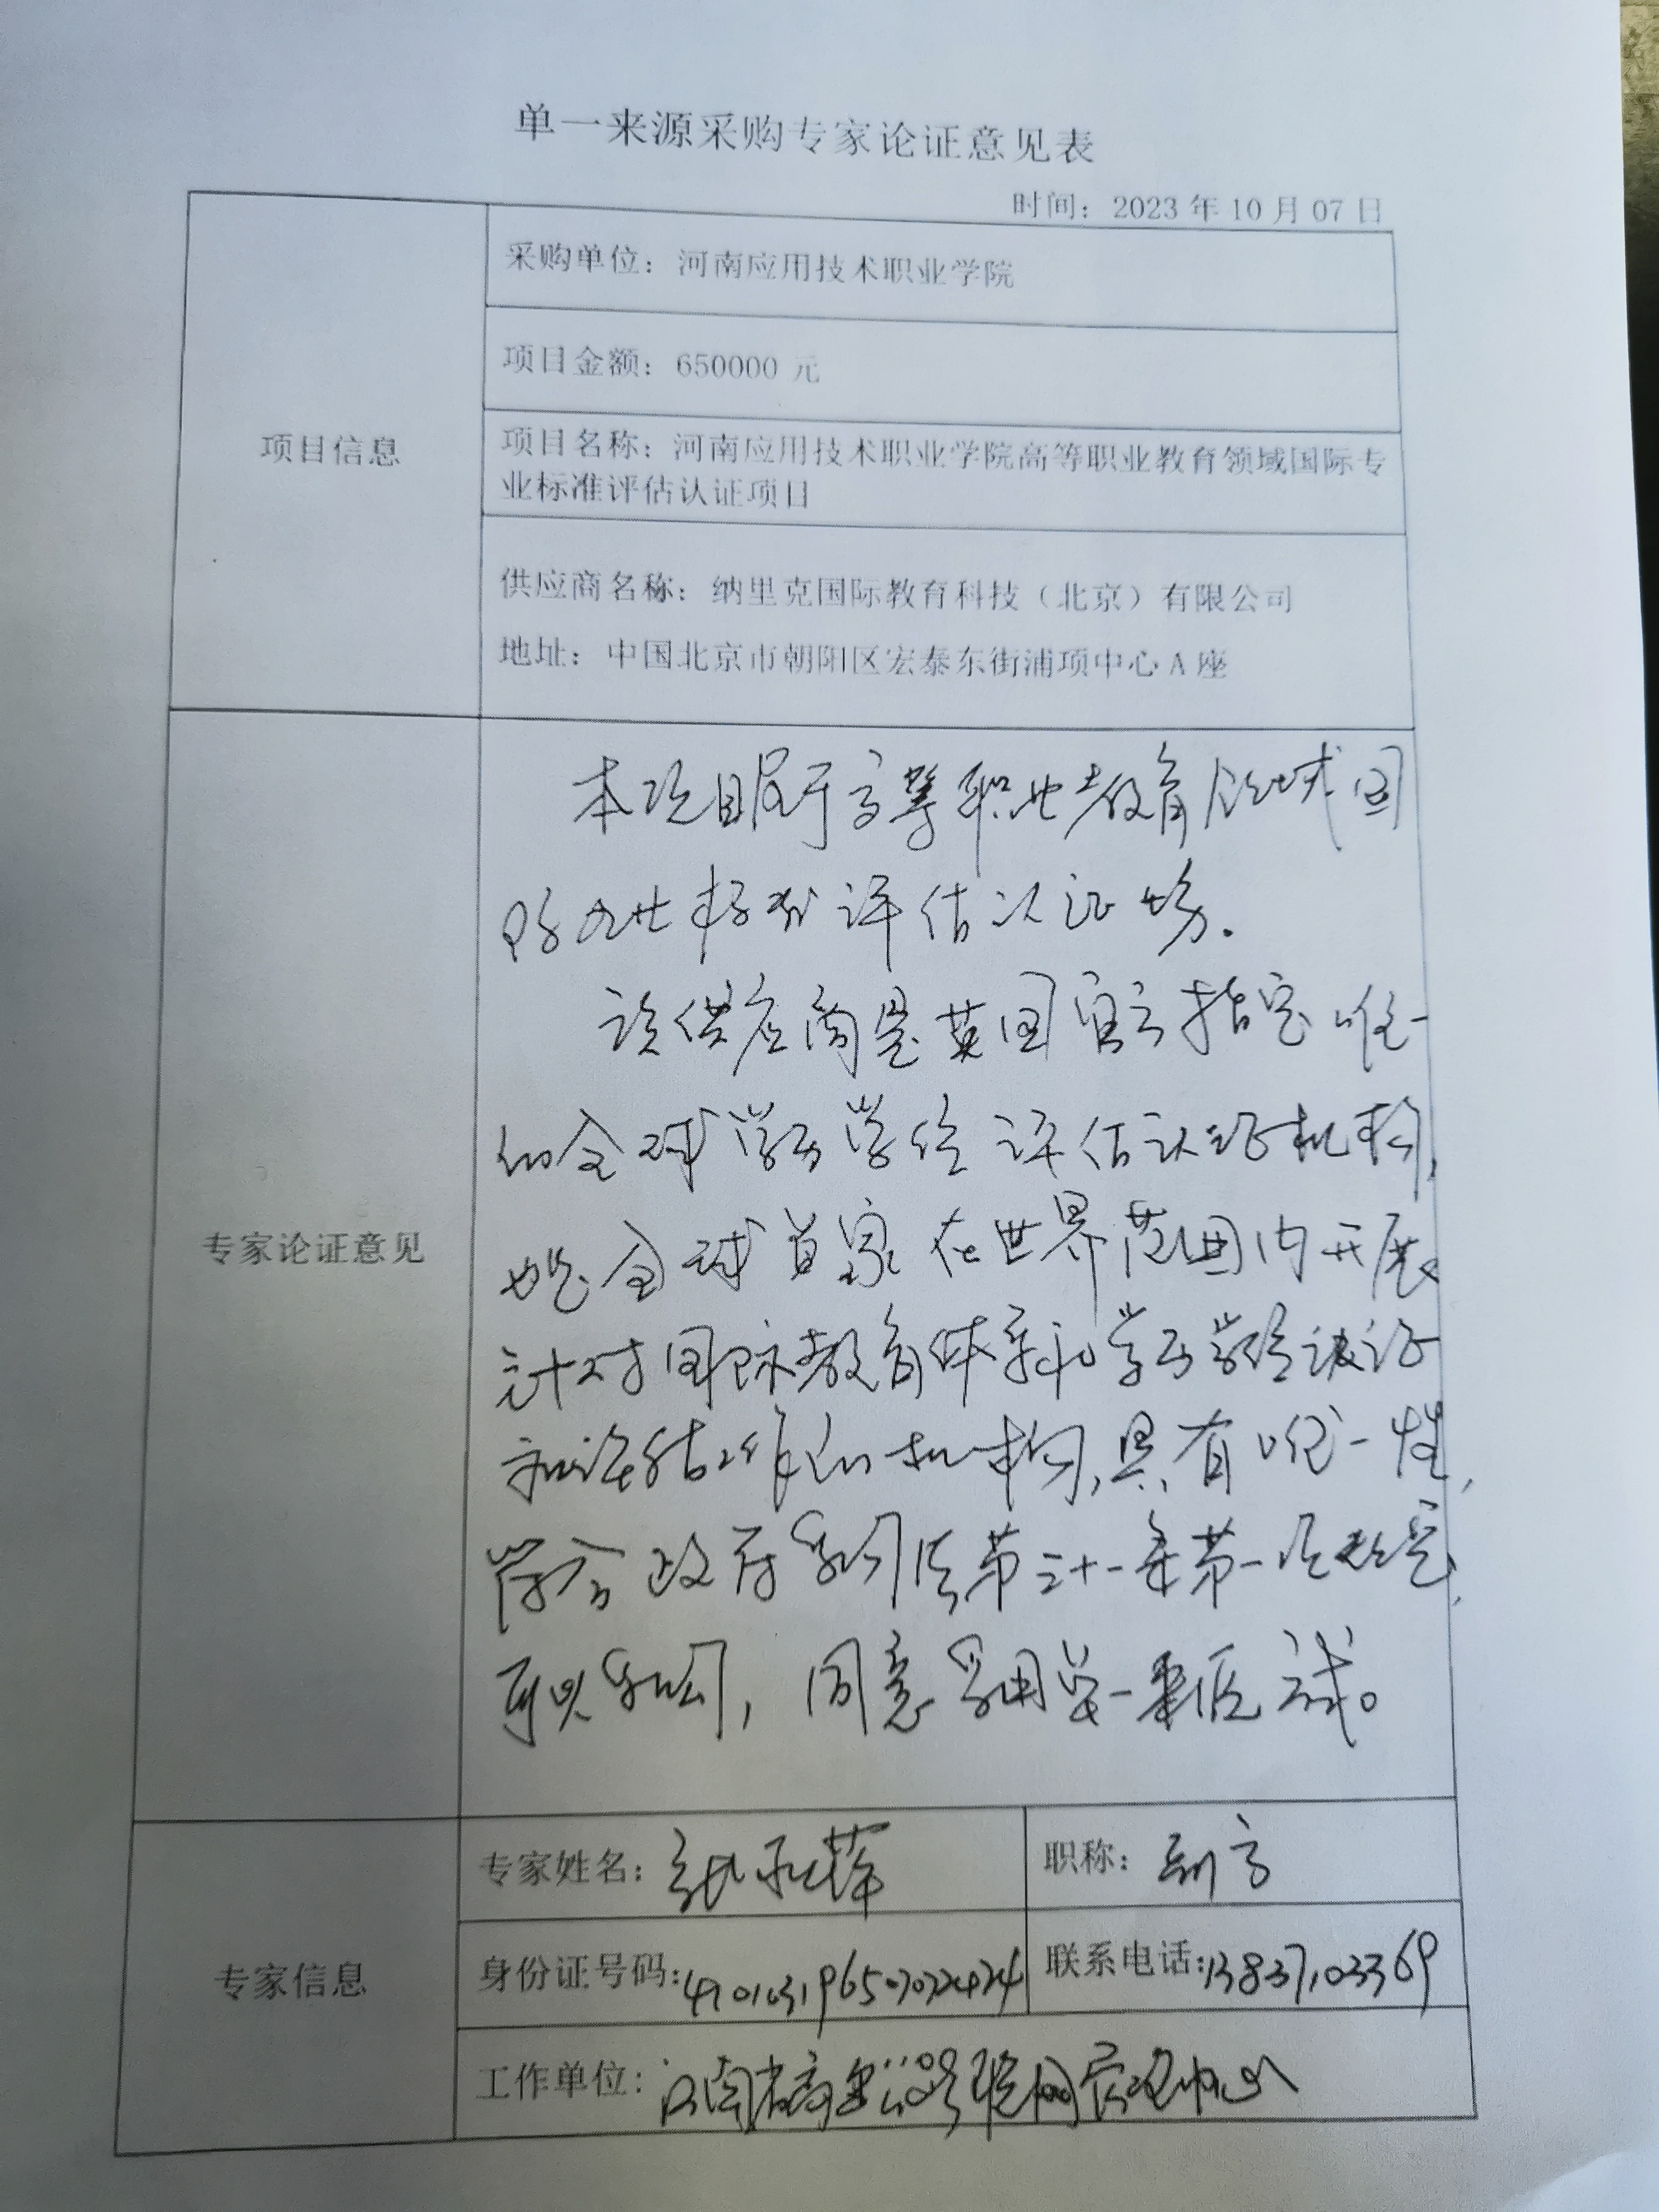 单一来源采购专家论证意见表
时间：2023年10月07日
项目信息
采购单位：河南应用技术职业学院
项目金额：650000 元
项目名称：河南应用技术职业学院高等职业教育领域国际专
业标准评估认证项目
供应商名称：纳里克国际教育科技（北京）有限公司
地址：中国北京市朝阳区宏泰东街浦项中心A座
专家论证意见
本项目属于高等职业教育领域国
际专业标准评估认证服务.
该供应商是英国官方指定唯一
的全球学历学位评估认证机构,
也是全球首家在世界范围内开展
针对国际教育体系和学历学位认证
和评估工作的机构,具有唯一性,
符合政府采购法第三十一条第一项规定,
可以采购,同意采用单一来源方式。
专家信息
专家姓名：
职称：副高
身份证号码：
联系电话：13837103369
工作单位：河南省高速公路联网管理中心